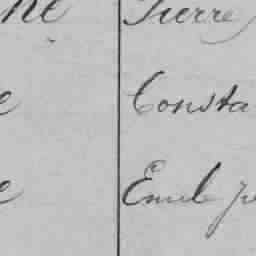 ne Pierre
e Consta
e Emile